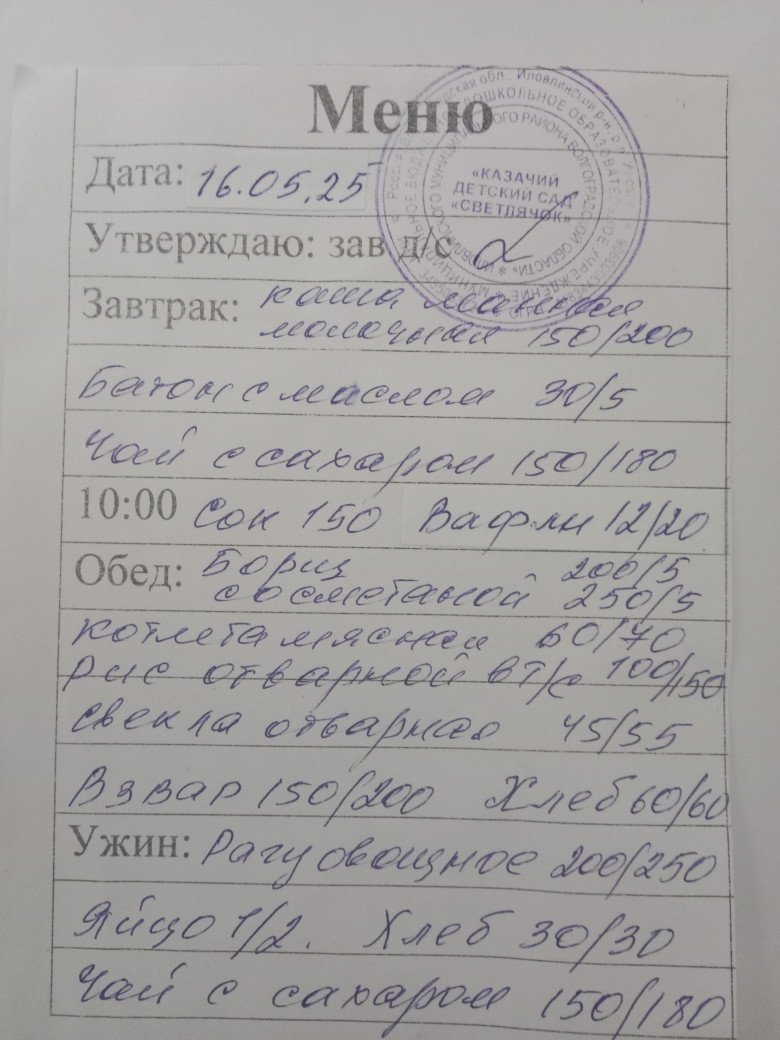 Меню
Дата: 16.05.25
Утверждаю: зав д/с
«КАЗАЧИЙ
ДЕТСКИЙ САД
«СВЕТЛЯЧОК»
Завтрак: каша манная
молочная 150/200
Батон с маслом 30/5
Чай с сахаром 150/180
10:00 Сок 150 Вафли 12/20
Обед: Борщ 200/5
со сметаной 250/5
котлета мясная 60/70
рис отварной в т/с 100/150
свекла отварная 45/55
Взвар 150/200 Хлеб 60/60
Ужин: Рагу овощное 200/250
Яйцо 1/2. Хлеб 30/30
Чай с сахаром 150/180